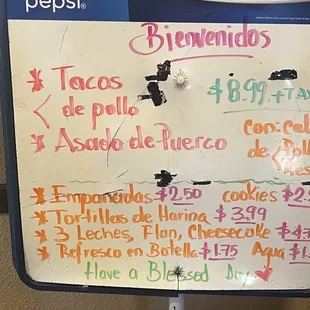 pepsi®
Bienvenidos
* Tacos de pollo $8.99 + TAX
* Asado de Puerco
Con: Cal
de < Poll
Res
* Empanadas $2.50 cookies $2.5
* Tortillas de Harina $3.99
* 3 Leches, Flan, Cheesecake $4.7
* Refresco en Botella $1.75 Agua $1.
Have a Blessed Day